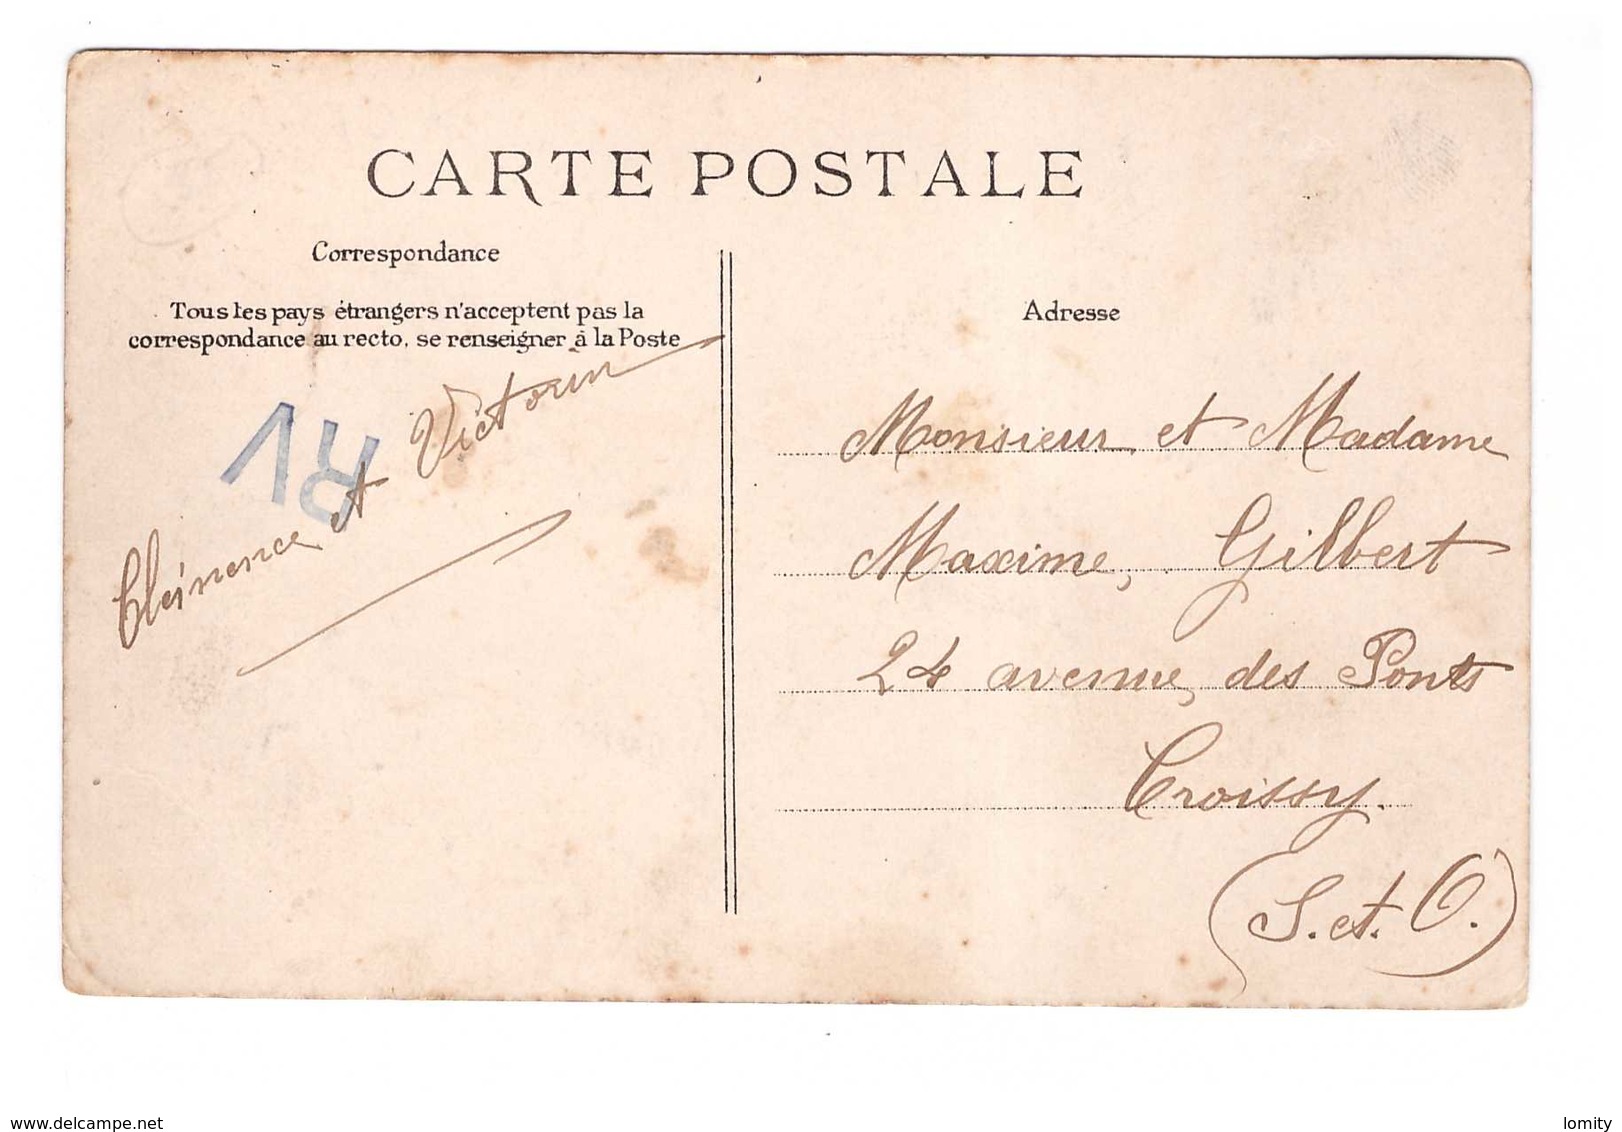 CARTE POSTALE
Correspondance
Tous les pays étrangers n'acceptent pas la
correspondance au recto, se renseigner à la Poste
Adresse
RV
Clémence et Victorin
Monsieur et Madame
Maxime Gilbert
24 avenue des Ponts
Croissy.
(S. et. O.)
www.delcampe.net
lomity